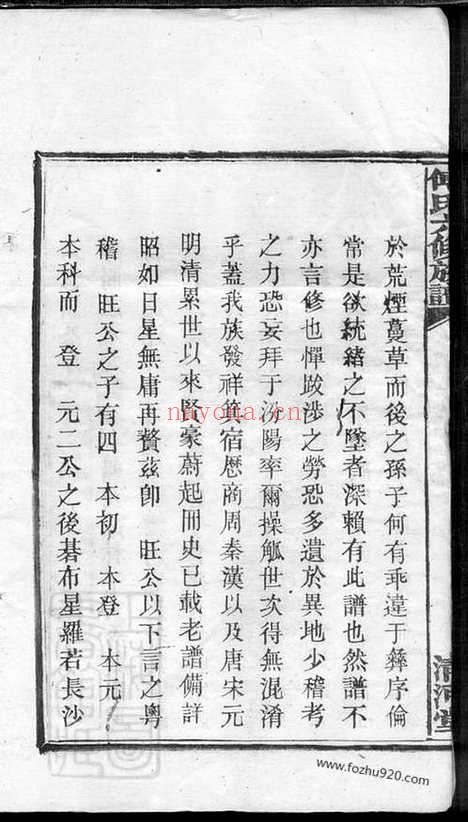 何氏六修族譜
清河堂
於荒煙蔓草而後之孫子何有乖違于彝序倫
常是欲統緒之不墜者深賴有此譜也然譜不
亦言修也憚跋涉之勞恐多遺於異地少稽考
之力恐妄拜于汾陽率爾操觚世次得無混淆
乎蓋我族發祥箕宿歷商周秦漢以及唐宋元
明清累世以來賢豪蔚起冊史已載老譜備詳
昭如日星無庸再贅茲卽 旺公以下言之粵
稽 旺公之子有四 本初 本登 本元
本科而 登 元二公之後碁布星羅若長沙
nayona.cn
www.fozhu920.com